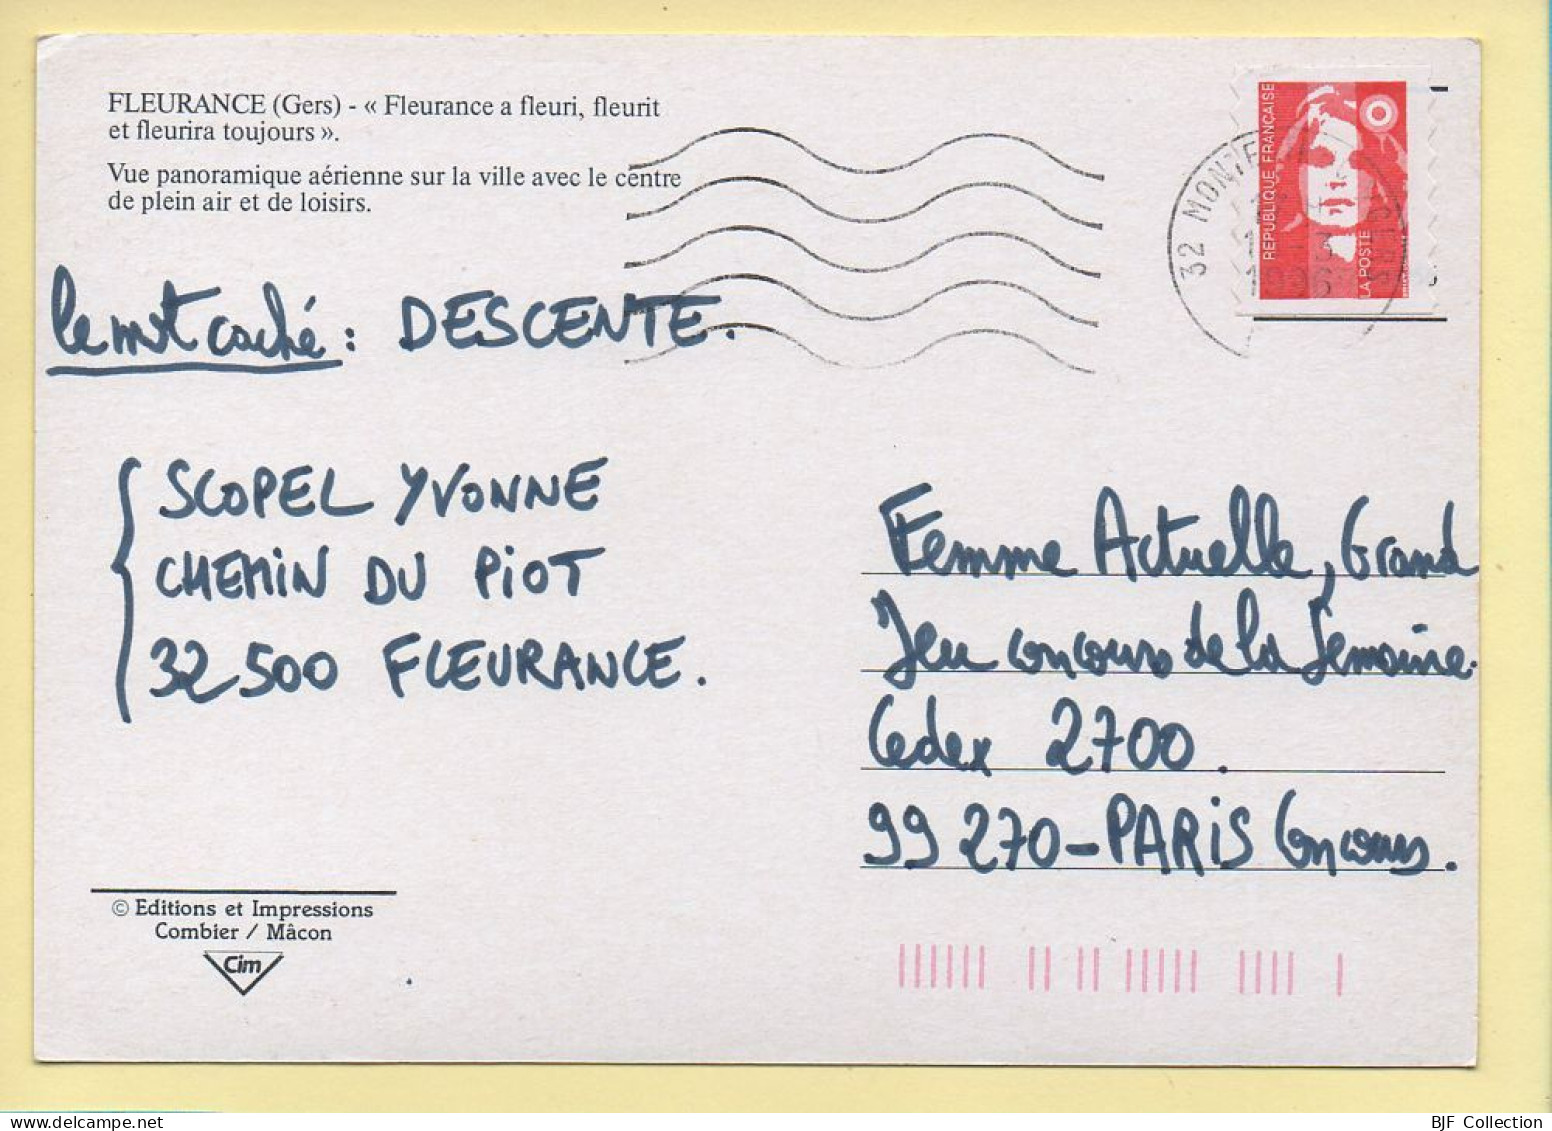 FLEURANCE (Gers) - « Fleurance a fleuri, fleurit
et fleurira toujours ».
Vue panoramique aérienne sur la ville avec le centre
de plein air et de loisirs.
RÉPUBLIQUE FRANÇAISE
LA POSTE
32 MONTE
1996
le mot caché : DESCENTE.
SCOPEL YVONNE
CHEMIN DU PIOT
32 500 FLEURANCE.
Femme Actuelle, Grand
Jeu concours de la Semaine.
Cedex 2700.
99 270 - PARIS Concours.
© Editions et Impressions
Combier / Mâcon
Cim
BJF Collection